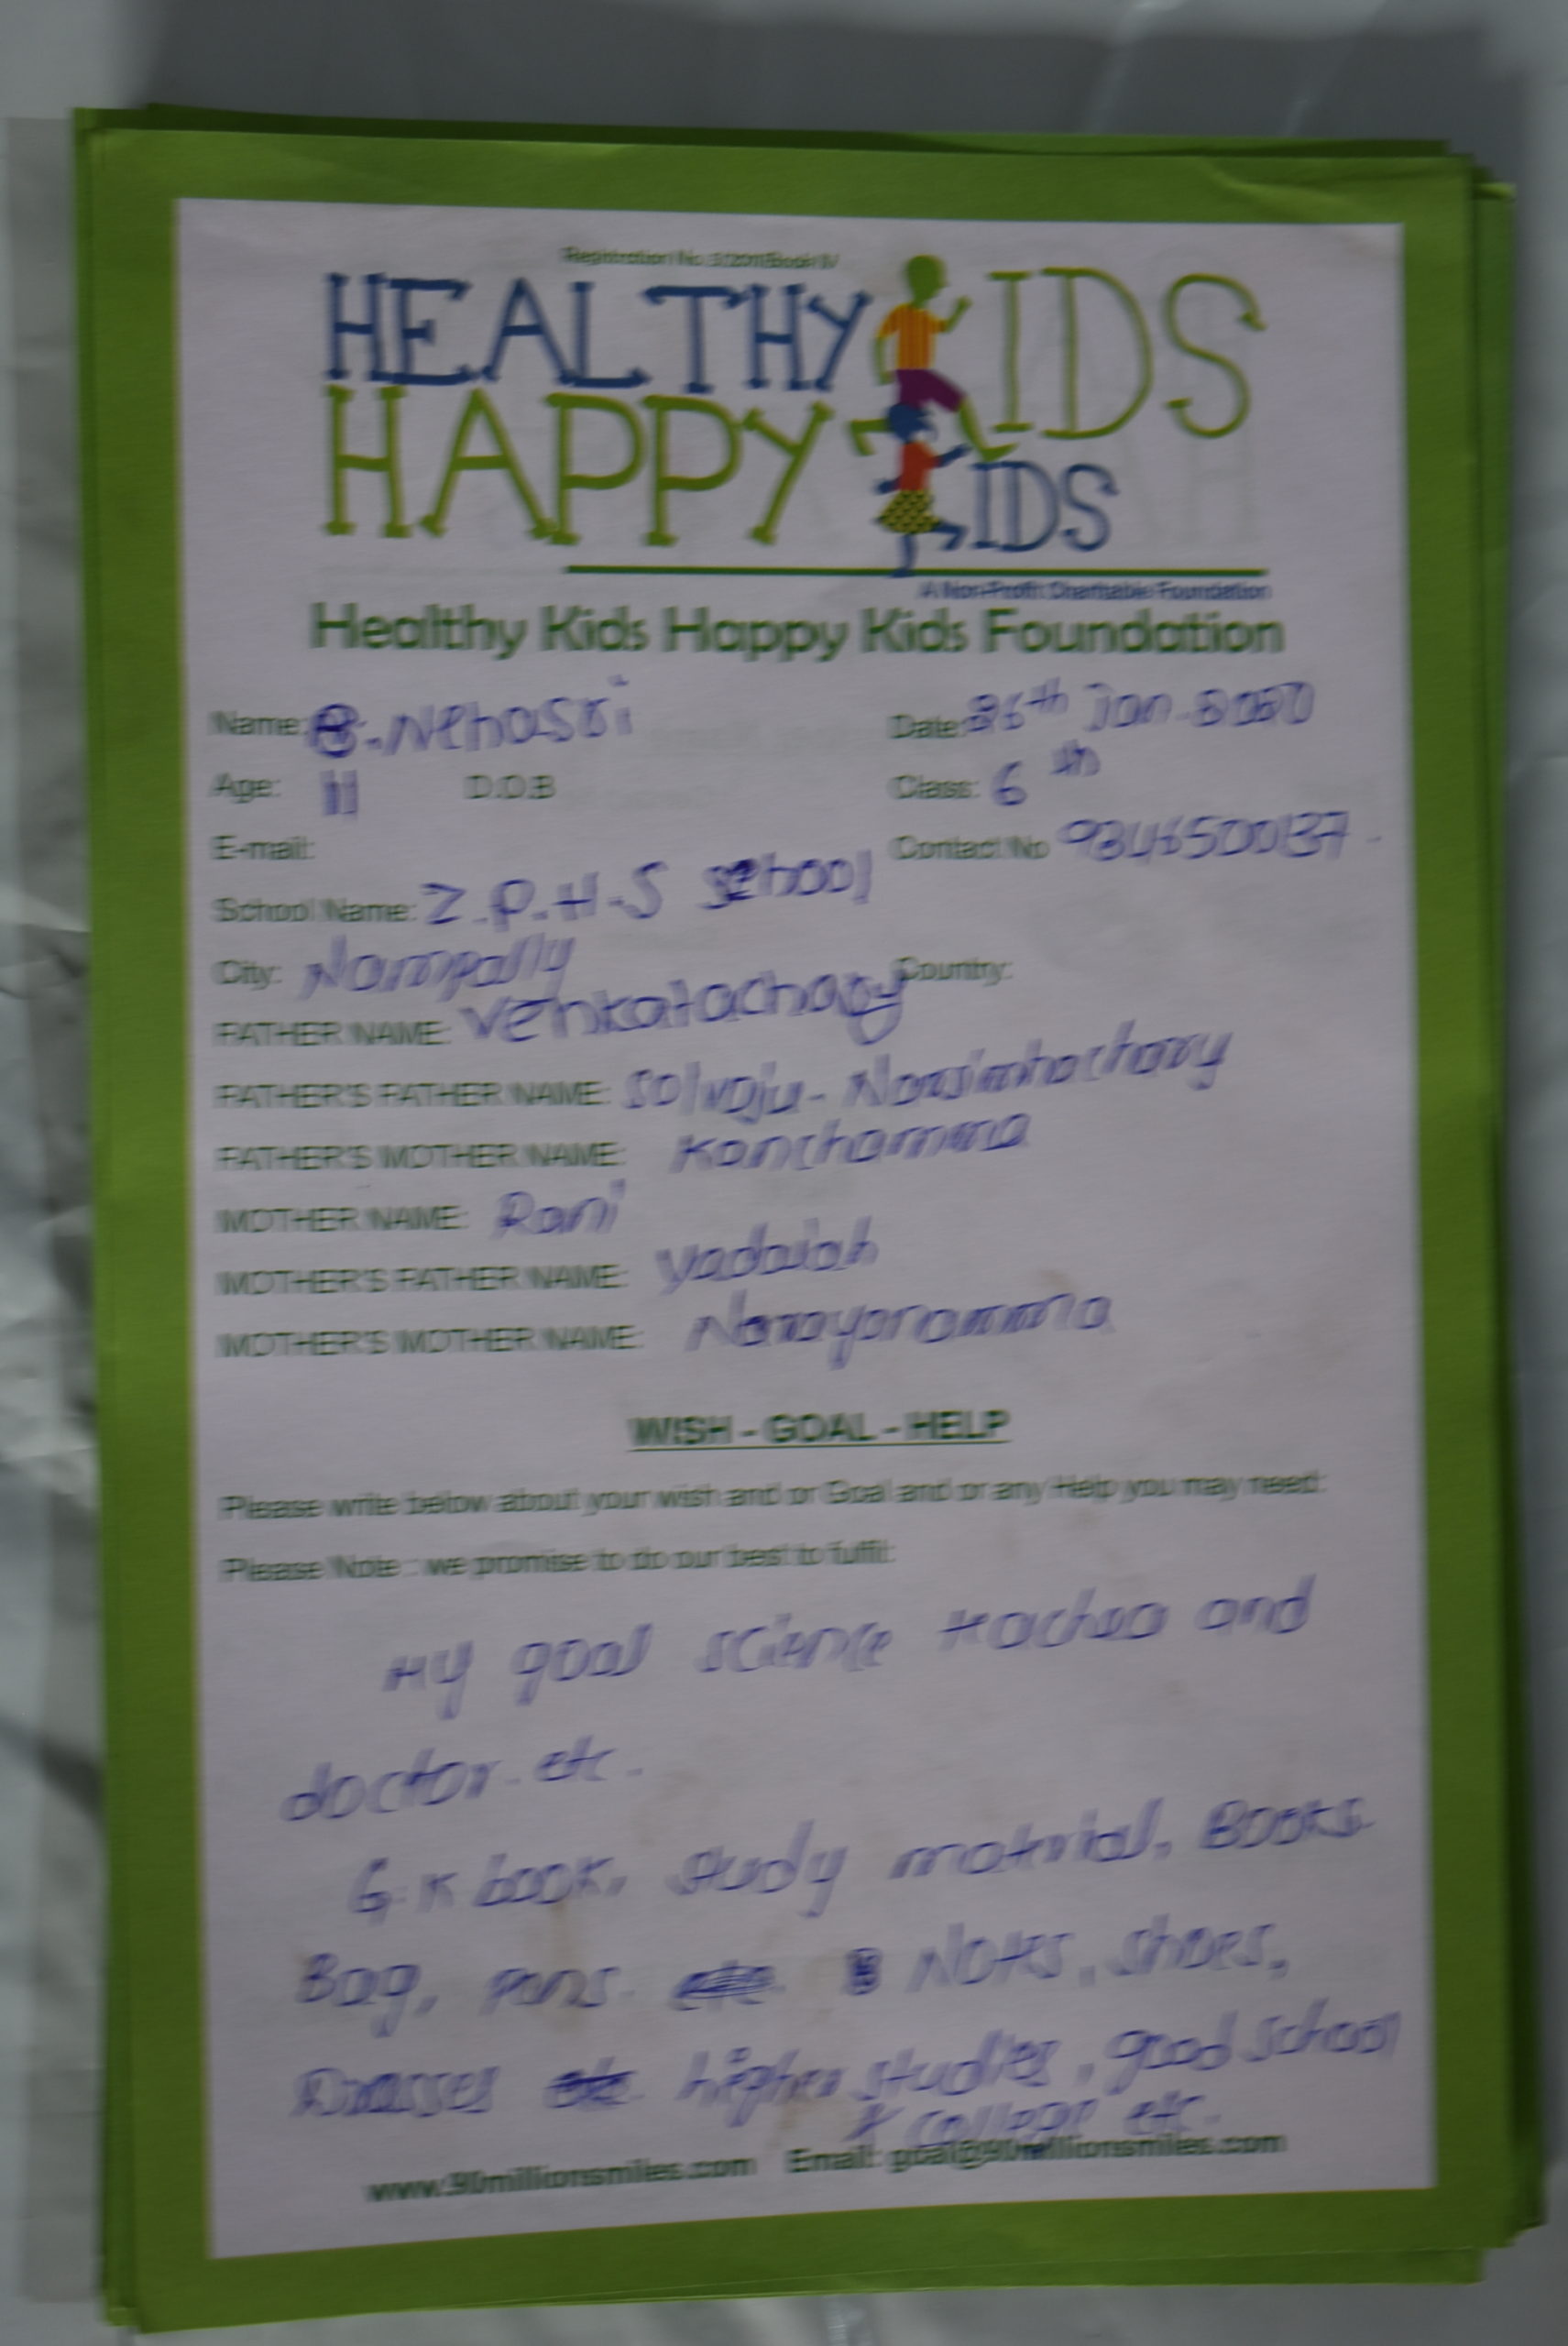 HEALTHY KIDS
HAPPY KIDS
A Non-Profit Charitable Foundation
Healthy Kids Happy Kids Foundation
Name: B. Nehasri Date: 26th Jan 2020
Age: 11 D.O.B Class: 6th
E-mail: Contact No
School Name: Z.P.H.S school
City: Nampally Country:
FATHER NAME: Venkatachary
FATHER'S FATHER NAME: Solvaju - Narsimhachary
FATHER'S MOTHER NAME: Kanchamma
MOTHER NAME: Rani
MOTHER'S FATHER NAME: Yadaiah
MOTHER'S MOTHER NAME:
WISH - GOAL - HELP
Please write below about your wish and or Goal and or any Help you may need:
Please Note : we promise to do our best to fulfil:
My goal science and
doctor. etc.
G.K book, study material, Books
Bag, pens. Notes, shoes,
higher studies, good school
college etc.
www.90millionsmiles.com Email: goal@90millionsmiles.com